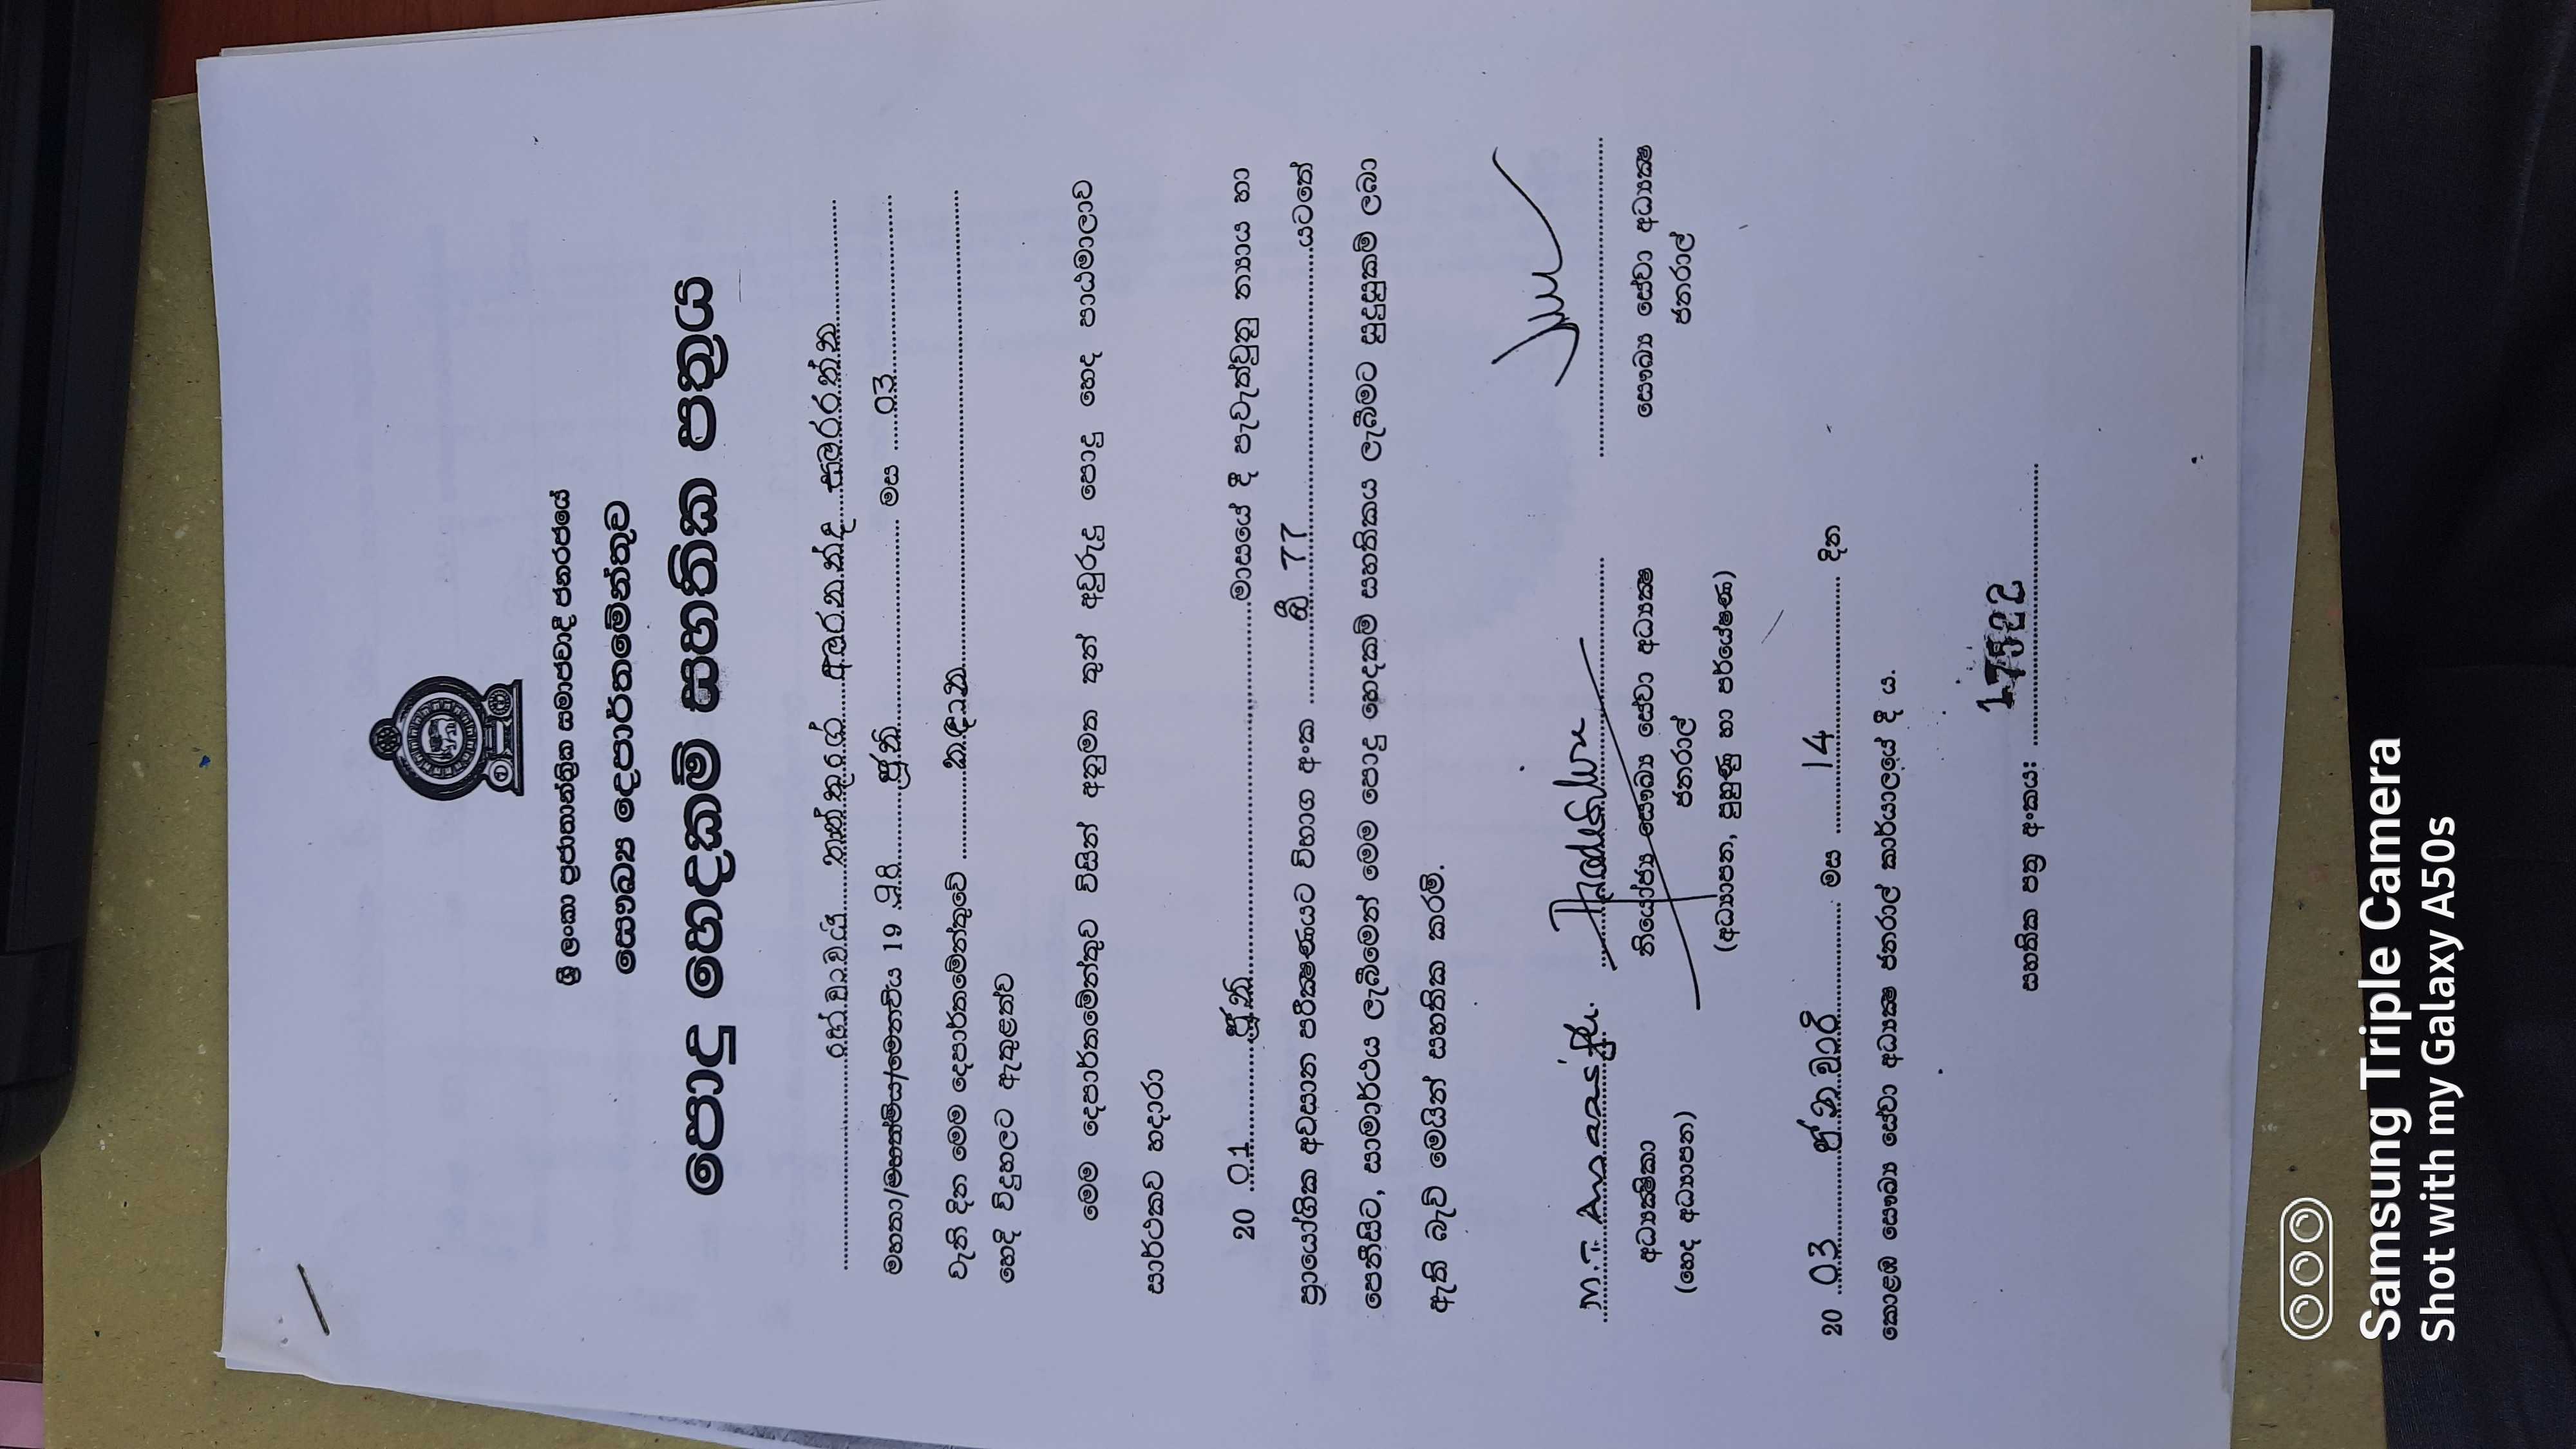 ශ්‍රී ලංකා ප්‍රජාතාන්ත්‍රික සමාජවාදී ජනරජයේ
සෞඛ්‍ය දෙපාර්තමේන්තුව
පොදු හෙදකම් සහතික පත්‍රය
අමරනන්ද සමරරත්න
මහතා/මහත්මිය/මෙනවිය 19 98 ජුනි මස 03
වැනි දින මෙම දෙපාර්තමේන්තුවේ කළුතර
හෙදි විදුහලට ඇතුළත්ව
මෙම දෙපාර්තමේන්තුව විසින් අනුමත තුන් අවුරුදු පොදු හෙද පාඨමාලාව
සාර්ථකව හදාරා
20 01 ජුනි මාසයේ දී පැවැත්වුනු න්‍යාය හා
ප්‍රායෝගික අවසාන පරීක්ෂණයට විභාග අංක 77 යටතේ
පෙනීසිට, සාමාර්ථය ලැබීමෙන් මෙම පොදු හෙදකම් සහතිකය ලැබීමට සුදුසුකම් ලබා
ඇති බැව් මෙයින් සහතික කරමි.
අධ්‍යක්ෂිකා
(හෙද අධ්‍යාපන)
නියෝජ්‍ය සෞඛ්‍ය සේවා අධ්‍යක්ෂ
ජනරාල්
(අධ්‍යාපන, පුහුණු හා පර්යේෂණ)
සෞඛ්‍ය සේවා අධ්‍යක්ෂ
ජනරාල්
20 03 ජනවාරි මස 14 දින
කොළඹ සෞඛ්‍ය සේවා අධ්‍යක්ෂ ජනරාල් කාර්යාලයේ දී ය.
සහතික පත්‍ර අංකය:
Samsung Triple Camera
Shot with my Galaxy A50s